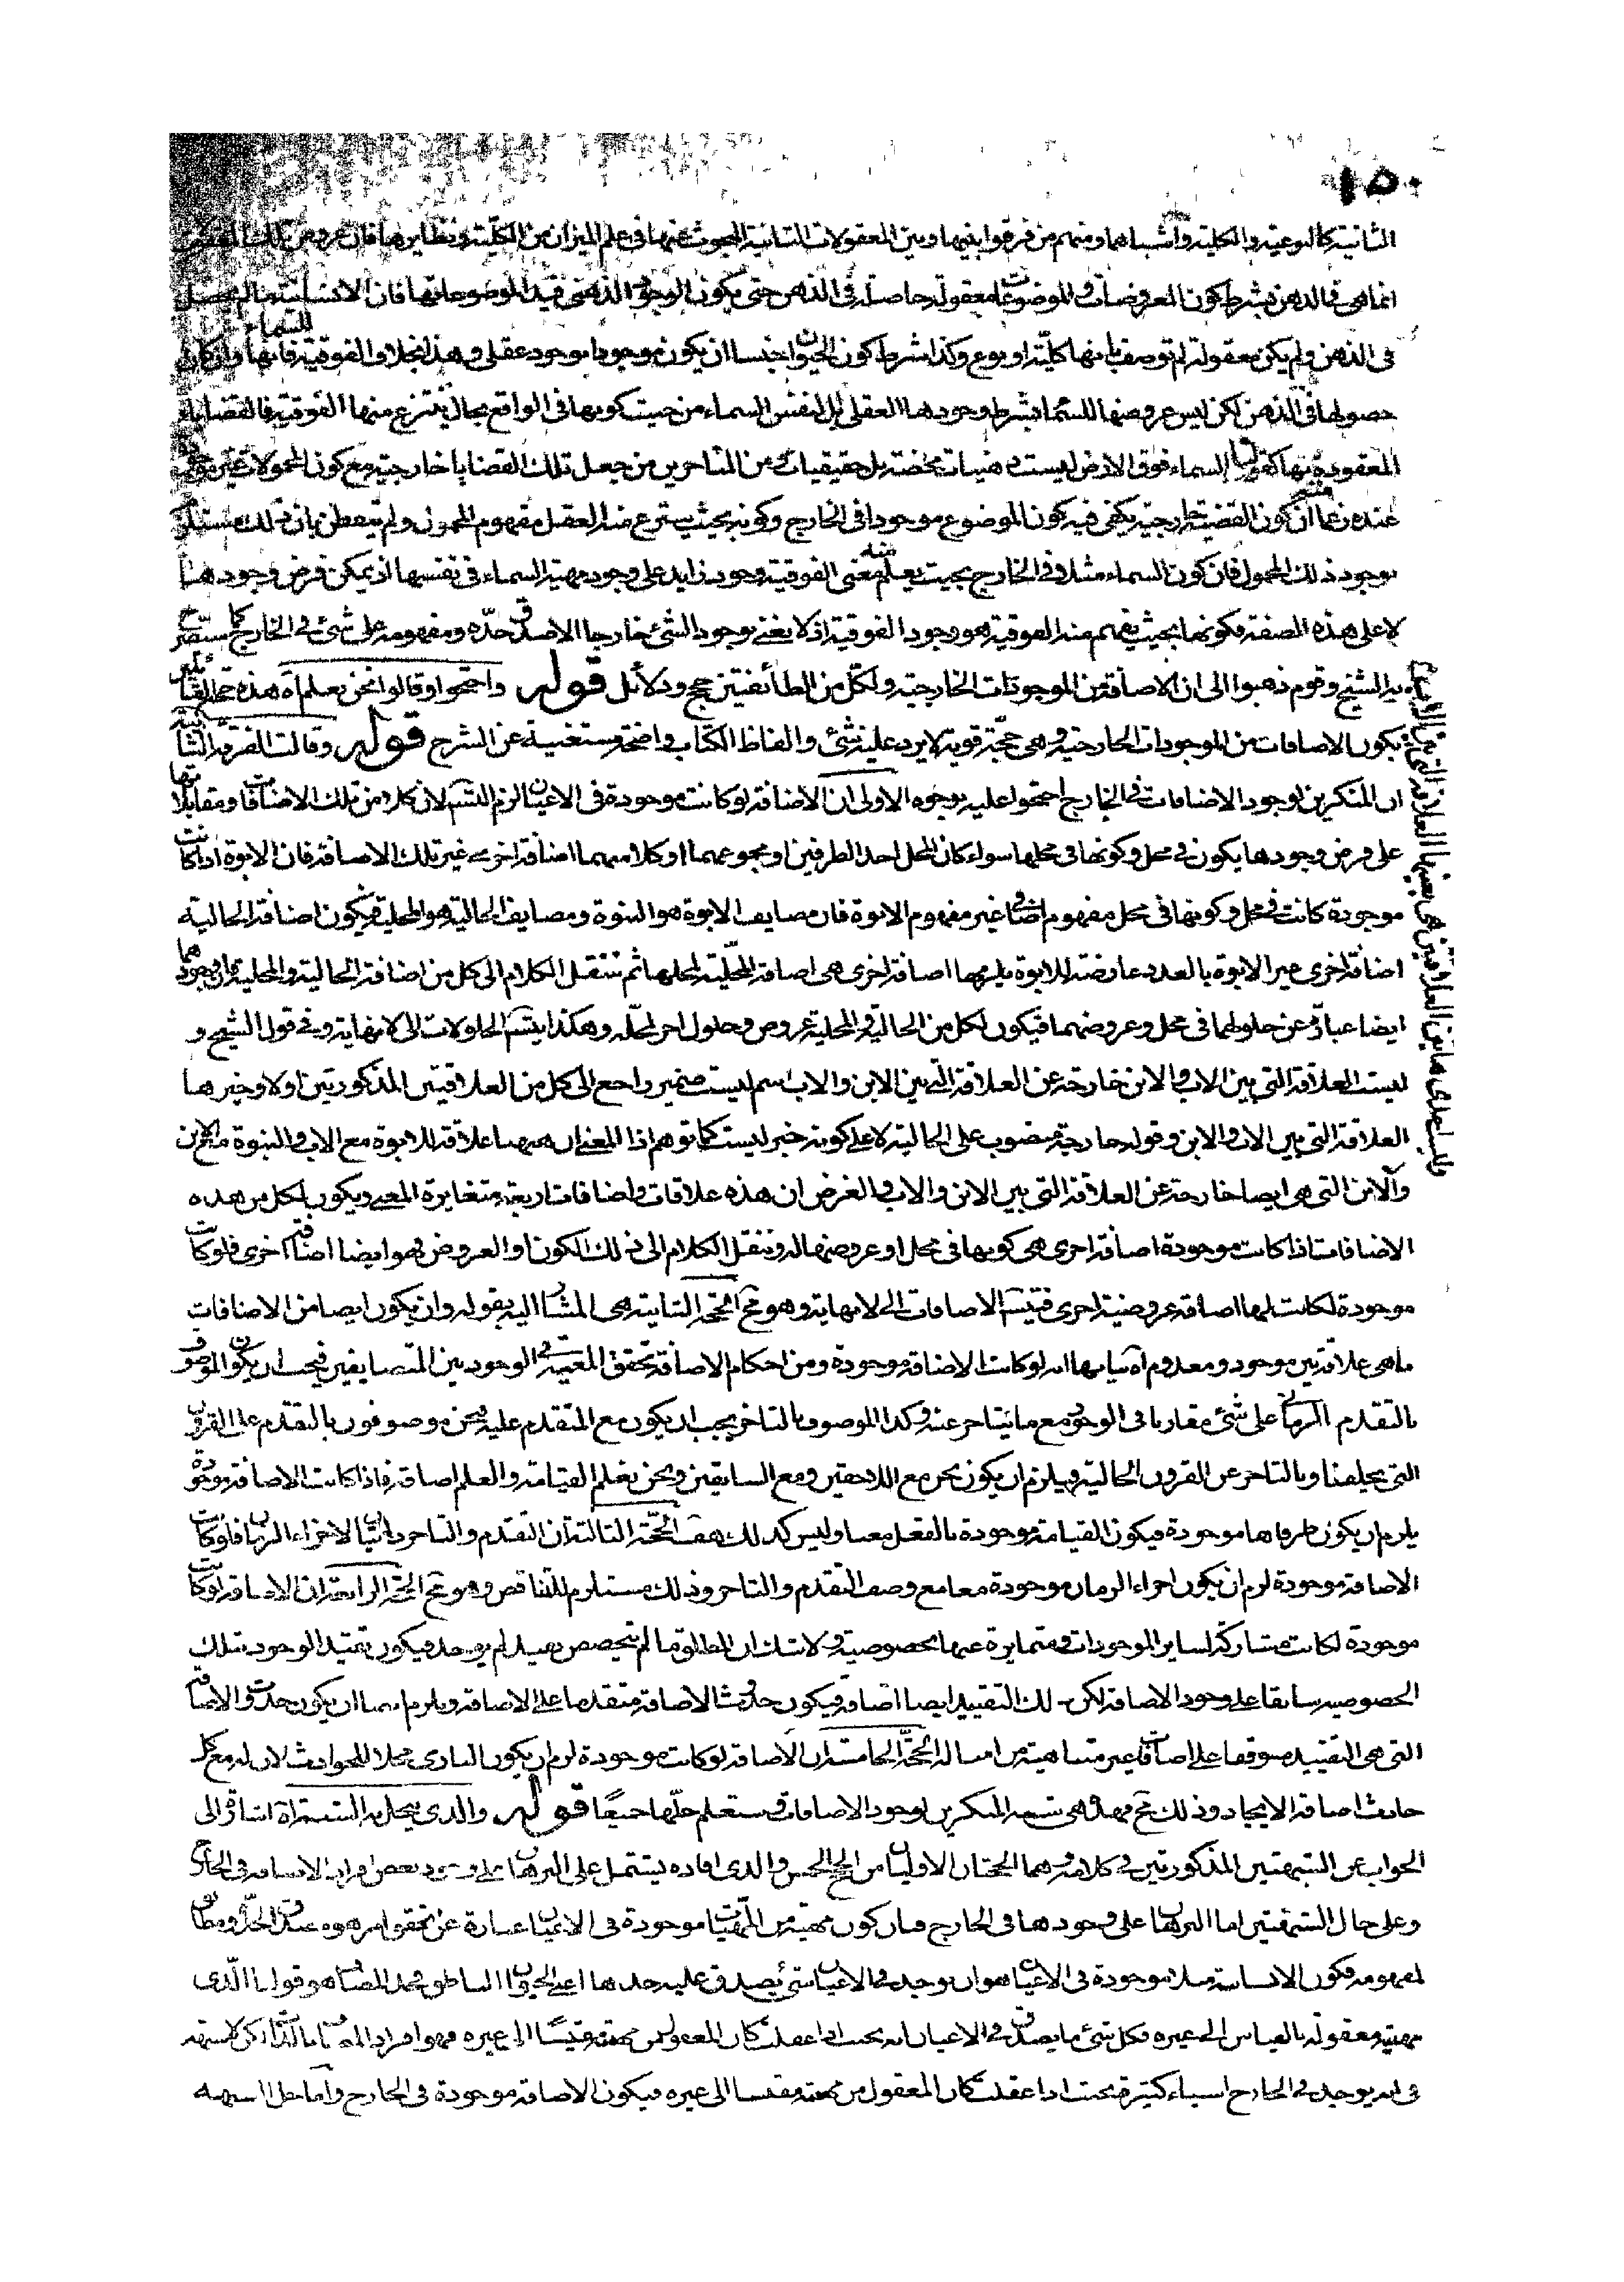 ١٥٠
الثانية كالنوعية والكلية وأشباهما ومنهم من فرقوا بينها وبين المعقولات الثانية المبحوث عنها فى علم الميزان من الكلية ونظايرها فان عروض تلك المعقولات
انما هى فى الذهن بشرط كون المعروضات والموضوعات لها معقولة حاصلة فى الذهن حتى يكون الوجود الذهنى قيد الموضوعاتها فان الانسانية ما لم تحصل
فى الذهن ولم يكن معقولة لم توصف بانها كلية او نوع وكذا شرط كون الحيوان جنسا ان يكون موجودا بوجود عقلى وهذا بخلاف الفوقية للسماء فانها وان كان
حصولها فى الذهن لكن ليس عروضها للسماء بشرط وجودها العقلى بل لنفس السماء من حيث كونها فى الواقع بحال ينتزع منها الفوقية فالقضايا
المعقودة بها كقولنا السماء فوق الارض ليست ذهنيات محضة بل حقيقيات ومن المتاخرين من جعل تلك القضايا خارجية مع كون المحمولات غير موجودة
عنده زعما ان كون القضية خارجية يكفى فيه كون الموضوع موجودا فى الخارج وكونه بحيث ينتزع منه العقل مفهوم المحمول ولم يتفطن بان ذلك مستلزم
بوجود ذلك المحمول فان كون السماء مثلا فى الخارج بحيث يعلم منه معنى الفوقية وجود زايد على وجود مهية السماء فى نفسها اذ يمكن فرض وجودها
لا على هذه الصفة فكونها بحيث يفهم منه الفوقية هو وجود الفوقية اذ لا يعنى بوجود الشئ خارجا الا صدق حده ومفهومه على شئ فى الخارج كما ستصرح
به الشيخ وقوم ذهبوا الى ان الاضافة من الموجودات الخارجية ولكل من الطائفتين حجج ودلائل قوله واحتجوا وقالوا نحن نعلم آه هذه حجة القائلين
بكون الاضافات من الموجودات الخارجية وهى حجة قوية لا يرد عليه شئ والفاظ الكتاب واضحة مستغنية عن الشرح قوله وقالت الفرقة الثانية
ان المنكرين لوجود الاضافات فى الخارج احتجوا عليه بوجوه الاولى ان الاضافة لو كانت موجودة فى الاعيان لزم التسلسل لان كلا من تلك الاضافات ومقابلاتها
على فرض وجودها يكون فى محل وكونها فى محلها سواء كان المحل احد الطرفين او مجموعهما او كلا منهما اضافة اخرى غير تلك الاضافة فان الابوة اذا كانت
موجودة كانت فى محل وكونها فى محل مفهوم اضافى غير مفهوم الابوة فان مضايف الابوة هو البنوة ومضايف الحالية هو المحلية فيكون اضافة الحالية
اضافة اخرى غير الابوة بالعدد عارضة للابوة يلزمها اضافة اخرى هى اضافة المحلية لمحلها ثم ننقل الكلام الى كل من اضافة الحالية والمحلية فان وجودهما
ايضا عبارة عن حلولهما فى محل وعروضهما فيكون لكل من الحالية والمحلية عروض وحلول اخر لمحله وهكذا يتسلسل الحلولات الى لا نهاية وفى قول الشيخ و
ليست العلاقة التى بين الاب والابن خارجة عن العلاقة التى بين الابن والاب اسم ليست ضمير راجع الى كل من العلاقتين المذكورتين اولا وخبرها
العلاقة التى بين الاب والابن وقوله خارجة منصوب على الحالية لا على كونه خبر ليست كما توهم اذا المعنى ان ههنا علاقة للابوة مع الاب والبنوة مع الابن
والابن التى هى ايضا خارجة عن العلاقة التى بين الابن والاب والغرض ان هذه علاقات واضافات اربعة متغايرة المعنى ويكون لكل من هذه
الاضافات اذا كانت موجودة اضافة اخرى هى كونها فى محل او عروضها له وننقل الكلام الى ذلك الكون او العروض فهو ايضا اضافة اخرى فلو كانت
موجودة لكانت لها اضافة عروضية اخرى فتتسلسل الاضافات الى لا نهاية وهو مح الحجة الثانية هى المشار اليه بقوله وان يكون ايضا من الاضافات
ما هى علاقة بين موجود ومعدوم آه بيانها انه لو كانت الاضافة موجودة ومن احكام الاضافة تحقق المعية فى الوجود بين المتضايفين فيجب ان يكون الموصوف
بالتقدم الزمانى على شئ مقارنا فى الوجود مع ما يتاخر عنه وكذا الموصوف بالتاخر يجب ان يكون مع المتقدم عليه ونحن موصوفون بالتقدم على القرون
التى تخلفنا وبالتاخر عن القرون الخالية ويلزم ان يكون نحن مع اللاحقين ومع السابقين ونحن نعلم القيامة والعلم اضافة فاذا كانت الاضافة موجودة
يلزم ان يكون طرفاها موجودة فيكون القيامة موجودة بالفعل معنا وليس كذلك هف الحجة الثالثة ان التقدم والتاخر ذاتيان لاجزاء الزمان فلو كانت
الاضافة موجودة لزم ان يكون اجزاء الزمان موجودة معا مع وصف التقدم والتاخر وذلك مستلزم للتناقض وهو مح الحجة الرابعة ان الاضافة لو كانت
موجودة لكانت مشاركة لساير الموجودات ومتمايزة عنها بخصوصية ولا شك ان المطلق ما لم يتخصص بقيد لم يوجد فيكون تقيد الوجود بتلك
الخصوصية سابقا على وجود الاضافة لكن ذلك التقييد ايضا اضافة فيكون حدوث الاضافة متقدما على الاضافة ويلزم ايضا ان يكون حدوث الاضافة
التى هى التقييد موقوفا على اضافات غير متناهية من امثاله الحجة الخامسة ان الاضافة لو كانت موجودة لزم ان يكون البارى محلا للحوادث لان له مع كل
حادث اضافة الايجاد وذلك مح فهذه هى شبه المنكرين لوجود الاضافات وستعلم حلها جميعا قوله والذى ينحل به الشبهتان آه اشارة الى
الجواب عن الشبهتين المذكورتين فى كلامه وهما الحجتان الاوليان من الحجج الخمس والذى افاده يشتمل على البرهان على وجود بعض افراد الاضافة فى الخارج
وعلى حال الشبهتين اما البرهان على وجودها فى الخارج فبان كون مهية من المهيات موجودة فى الاعيان عبارة عن تحقق امر هو صدق الحد ومطابق
لمفهومه فكون الانسان مثلا موجودة فى الاعيان هو ان يوجد فى الاعيان شئ يصدق عليه حدها اعنى الحيوان الناطق فحد المضاف هو قولنا الذى
مهيته معقولة بالقياس الى غيره فكل شئ ما يصدق فى الاعيان انه بحيث اذا عقلت كان المعقول من مهيته مقيسا الى غيره فهو افراد المضاف بالذات لكن لا شبهة
فى انه يوجد فى الخارج اشياء كثيرة بحيث اذا عقلت كان المعقول من مهيته مقيسا الى غيره فيكون الاضافة موجودة فى الخارج واما حل الشبهة